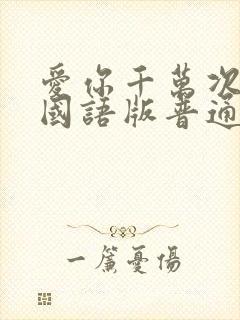 愛你千萬次
國語版普通
一簾憂傷